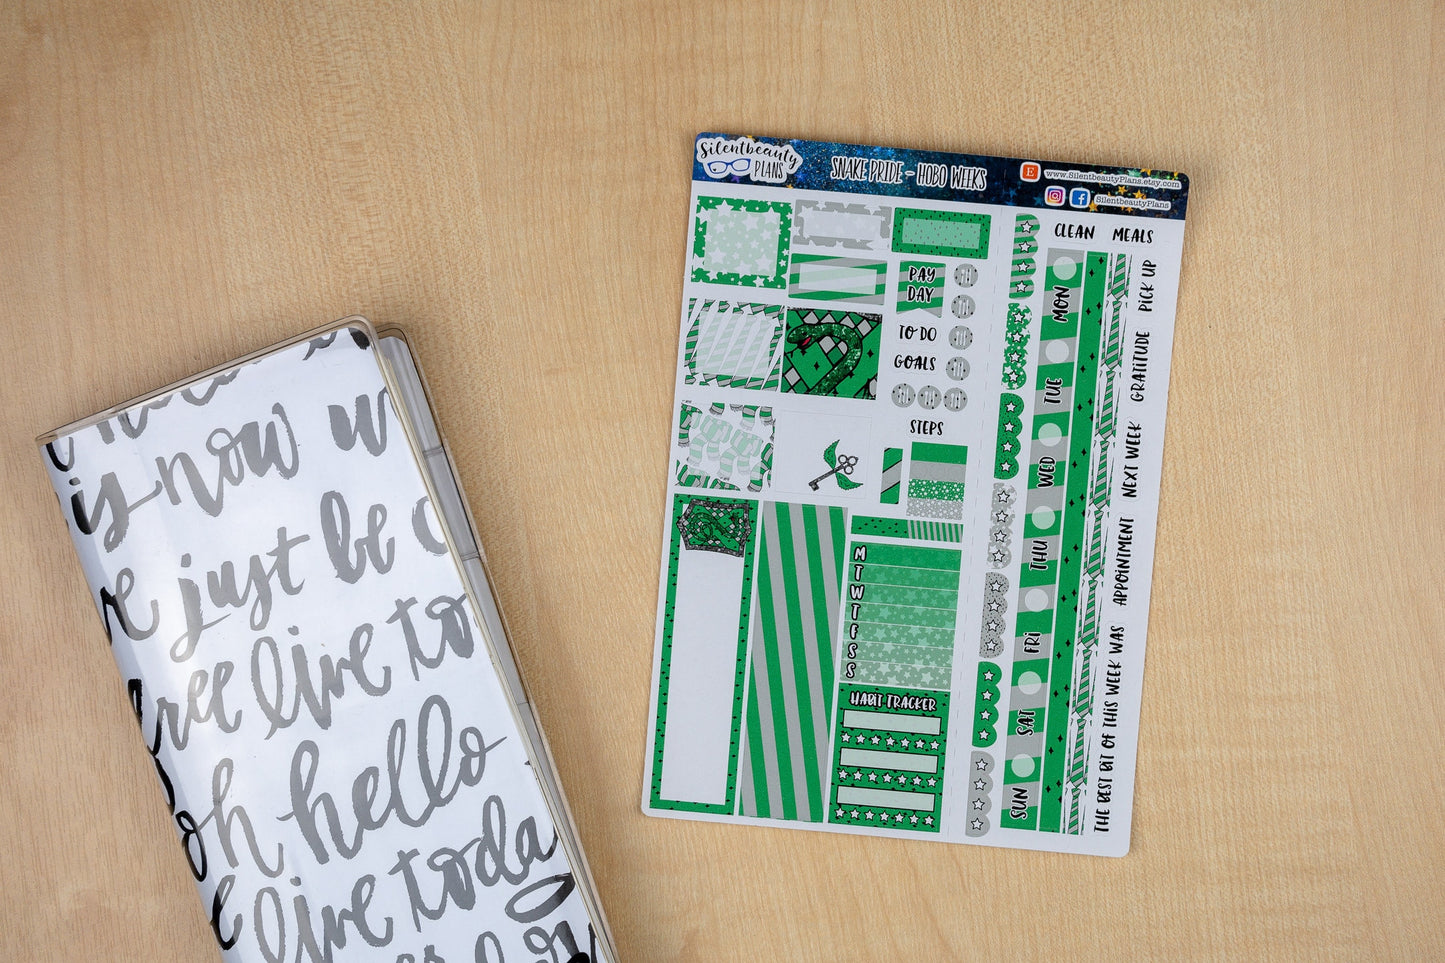 Silentbeauty
PLANS
SNAKE PRIDE - HOBO WEEKS
E
www.SilentbeautyPlans.etsy.com
f
SilentbeautyPlans
CLEAN
MEALS
PAY
DAY
TO DO
GOALS
STEPS
M
T
W
T
F
S
S
HABIT TRACKER
MON
TUE
WED
THU
FRI
SAT
SUN
PICK UP
GRATITUDE
NEXT WEEK
APPOINTMENT
THE BEST BIT OF THIS WEEK WAS
is now
just be
free live to
oh hello
live today